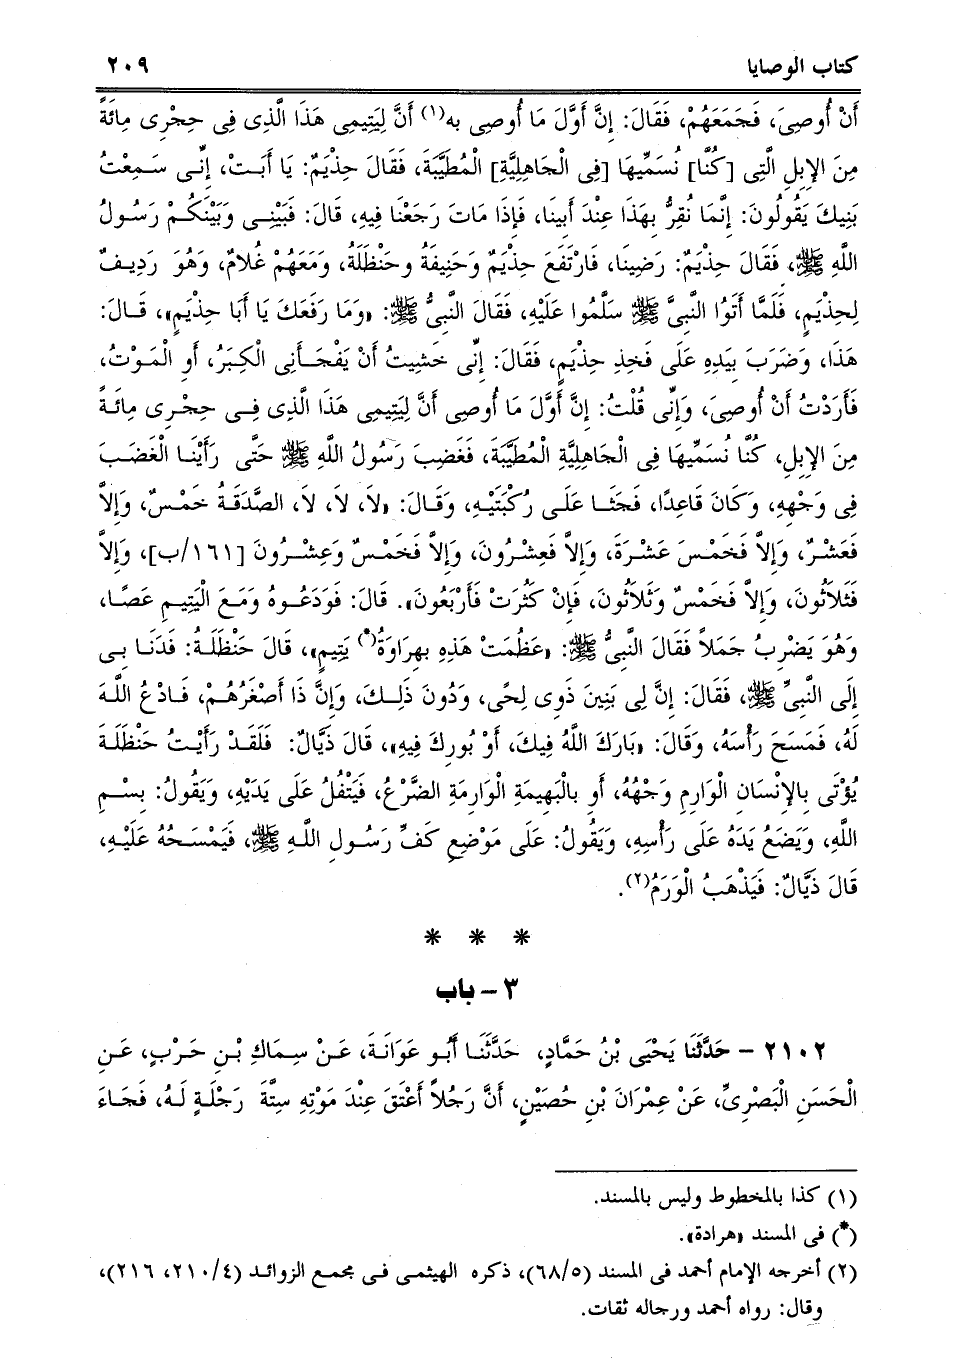 كتاب الوصايا ٢٠٩
أَنْ أُوصِىَ، فَجَمَعَهُمْ، فَقَالَ: إِنَّ أَوَّلَ مَا أُوصِى به(١) أَنَّ لِيَتِيمِى هَذَا الَّذِى فِى حِجْرِى مِائَةً
مِنَ الإِبِلِ الَّتِى [كُنَّا] نُسَمِّيهَا [فِى الْجَاهِلِيَّةِ] الْمُطَيَّبَةَ، فَقَالَ حِذْيَمٌ: يَا أَبَتْ، إِنِّى سَمِعْتُ
بَنِيكَ يَقُولُونَ: إِنَّمَا نُقِرُّ بِهَذَا عِنْدَ أَبِينَا، فَإِذَا مَاتَ رَجَعْنَا فِيهِ، قَالَ: فَبَيْنِى وَبَيْنَكُمْ رَسُولُ
اللَّهِ ﷺ، فَقَالَ حِذْيَمٌ: رَضِينَا، فَارْتَفَعَ حِذْيَمٌ وَحَنِيفَةُ وحَنْظَلَةُ، وَمَعَهُمْ غُلاَمٌ، وَهُوَ رَدِيفٌ
لِحِذْيَمٍ، فَلَمَّا أَتَوُا النَّبِىَّ ﷺ سَلَّمُوا عَلَيْهِ، فَقَالَ النَّبِىُّ ﷺ: «وَمَا رَفَعَكَ يَا أَبَا حِذْيَمٍ»، قَالَ:
هَذَا، وَضَرَبَ بِيَدِهِ عَلَى فَخِذِ حِذْيَمٍ، فَقَالَ: إِنِّى خَشِيتُ أَنْ يَفْجَأَنِى الْكِبَرُ، أَوِ الْمَوْتُ،
فَأَرَدْتُ أَنْ أُوصِىَ، وَإِنِّى قُلْتُ: إِنَّ أَوَّلَ مَا أُوصِى أَنَّ لِيَتِيمِى هَذَا الَّذِى فِى حِجْرِى مِائَةً
مِنَ الإِبِلِ، كُنَّا نُسَمِّيهَا فِى الْجَاهِلِيَّةِ الْمُطَيَّبَةَ، فَغَضِبَ رَسُولُ اللَّهِ ﷺ حَتَّى رَأَيْنَا الْغَضَبَ
فِى وَجْهِهِ، وَكَانَ قَاعِدًا، فَجَثَا عَلَى رُكْبَتَيْهِ، وَقَالَ: «لاَ، لاَ، لاَ، الصَّدَقَةُ خَمْسٌ، وَإِلاَّ
فَعَشْرٌ، وَإِلاَّ فَخَمْسَ عَشْرَةَ، وَإِلاَّ فَعِشْرُونَ، وَإِلاَّ فَخَمْسٌ وَعِشْرُونَ [١٦١/ب]، وَإِلاَّ
فَثَلاَثُونَ، وَإِلاَّ فَخَمْسٌ وَثَلاَثُونَ، فَإِنْ كَثُرَتْ فَأَرْبَعُونَ». قَالَ: فَوَدَعُوهُ وَمَعَ الْيَتِيمِ عَصًا،
وَهُوَ يَضْرِبُ جَمَلاً فَقَالَ النَّبِىُّ ﷺ: «عَظُمَتْ هَذِهِ بهِرَاوَةُ(*) يَتِيمٍ»، قَالَ حَنْظَلَةُ: فَدَنَا بِى
إِلَى النَّبِىِّ ﷺ، فَقَالَ: إِنَّ لِى بَنِينَ ذَوِى لِحًى، وَدُونَ ذَلِكَ، وَإِنَّ ذَا أَصْغَرُهُمْ، فَادْعُ اللَّهَ
لَهُ، فَمَسَحَ رَأْسَهُ، وَقَالَ: «بَارَكَ اللَّهُ فِيكَ، أَوْ بُورِكَ فِيهِ»، قَالَ ذَيَّالٌ: فَلَقَدْ رَأَيْتُ حَنْظَلَةَ
يُؤْتَى بِالإِنْسَانِ الْوَارِمِ وَجْهُهُ، أَو بِالْبَهِيمَةِ الْوَارِمَةِ الضَّرْعُ، فَيَتْفُلُ عَلَى يَدَيْهِ، وَيَقُولُ: بِسْمِ
اللَّهِ، وَيَضَعُ يَدَهُ عَلَى رَأْسِهِ، وَيَقُولُ: عَلَى مَوْضِعِ كَفِّ رَسُولِ اللَّهِ ﷺ، فَيَمْسَحُهُ عَلَيْهِ،
قَالَ ذَيَّالٌ: فَيَذْهَبُ الْوَرَمُ(٢).
* * *
٣ – باب
٢١٠٢ – حَدَّثَنَا يَحْيَى بْنُ حَمَّادٍ، حَدَّثَنَا أَبُو عَوَانَةَ، عَنْ سِمَاكِ بْنِ حَرْبٍ، عَنِ
الْحَسَنِ الْبَصْرِىِّ، عَنْ عِمْرَانَ بْنِ حُصَيْنٍ، أَنَّ رَجُلاً أَعْتَقَ عِنْدَ مَوْتِهِ سِتَّةَ رَجْلَةٍ لَهُ، فَجَاءَ
(١) كذا بالمخطوط وليس بالمسند.
(*) فى المسند «هرادة».
(٢) أخرجه الإمام أحمد فى المسند (٦٨/٥)، ذكره الهيثمى فى مجمع الزوائد (٢١٠/٤، ٢١٦)،
وقال: رواه أحمد ورجاله ثقات.